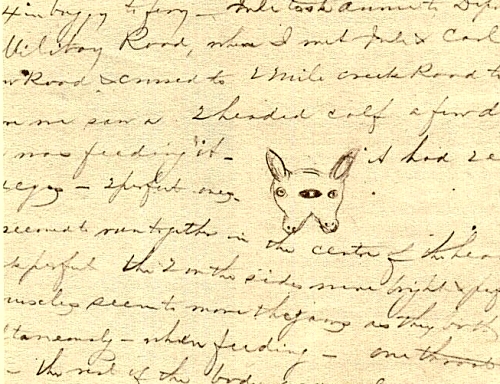 in buggy to ferry - Jule took Annie to Dep
Military Road, when I met Jule & Carl
Road & crossed to 2 mile creek Road t
me saw a 2 headed calf a few d
was feeding it - it had 2 e
eyes - 2 perfect ones
seemed to run together in the centre of the hea
perfect the 2 on the sides were bright & per
muscles seem to move the jaws as they both
ltaneously - when feeding - one throat
- the rest of the body